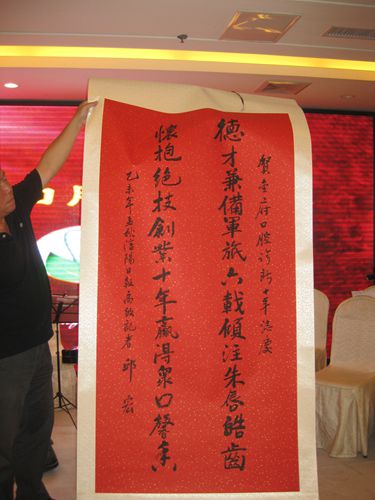 賀府口腔診所年誌慶
德才兼備軍旅六載傾注朱唇皓齒
懷抱絕技創業十年贏得眾口馨香
乙未年孟秋瀋陽日報高級記者 邱宏